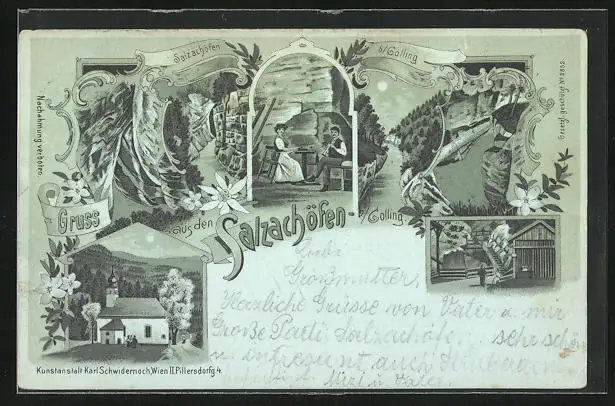 Salzachöfen
b/Golling
Nachahmung verboten.
Gesetzl. geschützt Nº 2852.
Gruss
aus den
Salzachöfen
b/Golling
Liebe
Großmutter,
Herzliche Grüsse von Vater u mir
Große Salzachöfen sehr schön
u auch
Mizi u. Vater.
Kunstanstalt Karl Schwidernoch, Wien II. Pillersdorfg. 4.